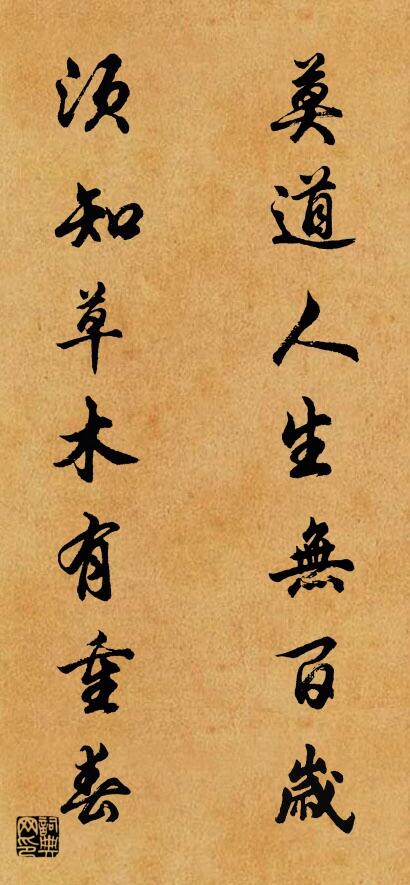 莫道人生無百歲
須知草木有重春
詞典網印